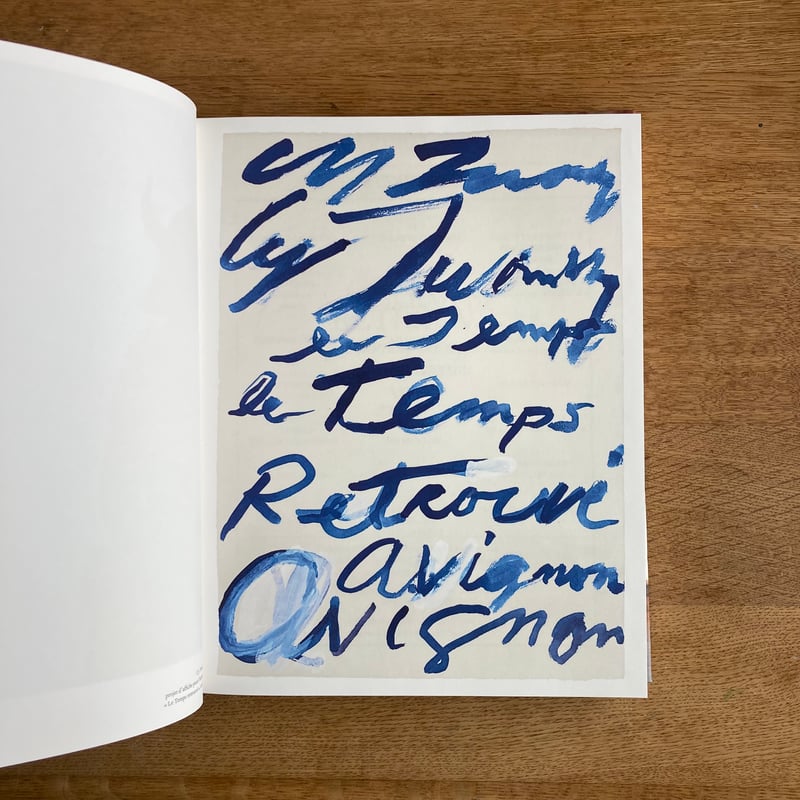 Cy Twombly
le Temps
le Temps
Retrouvé
avignon
avignon
projet d'affiche
« Le Temps